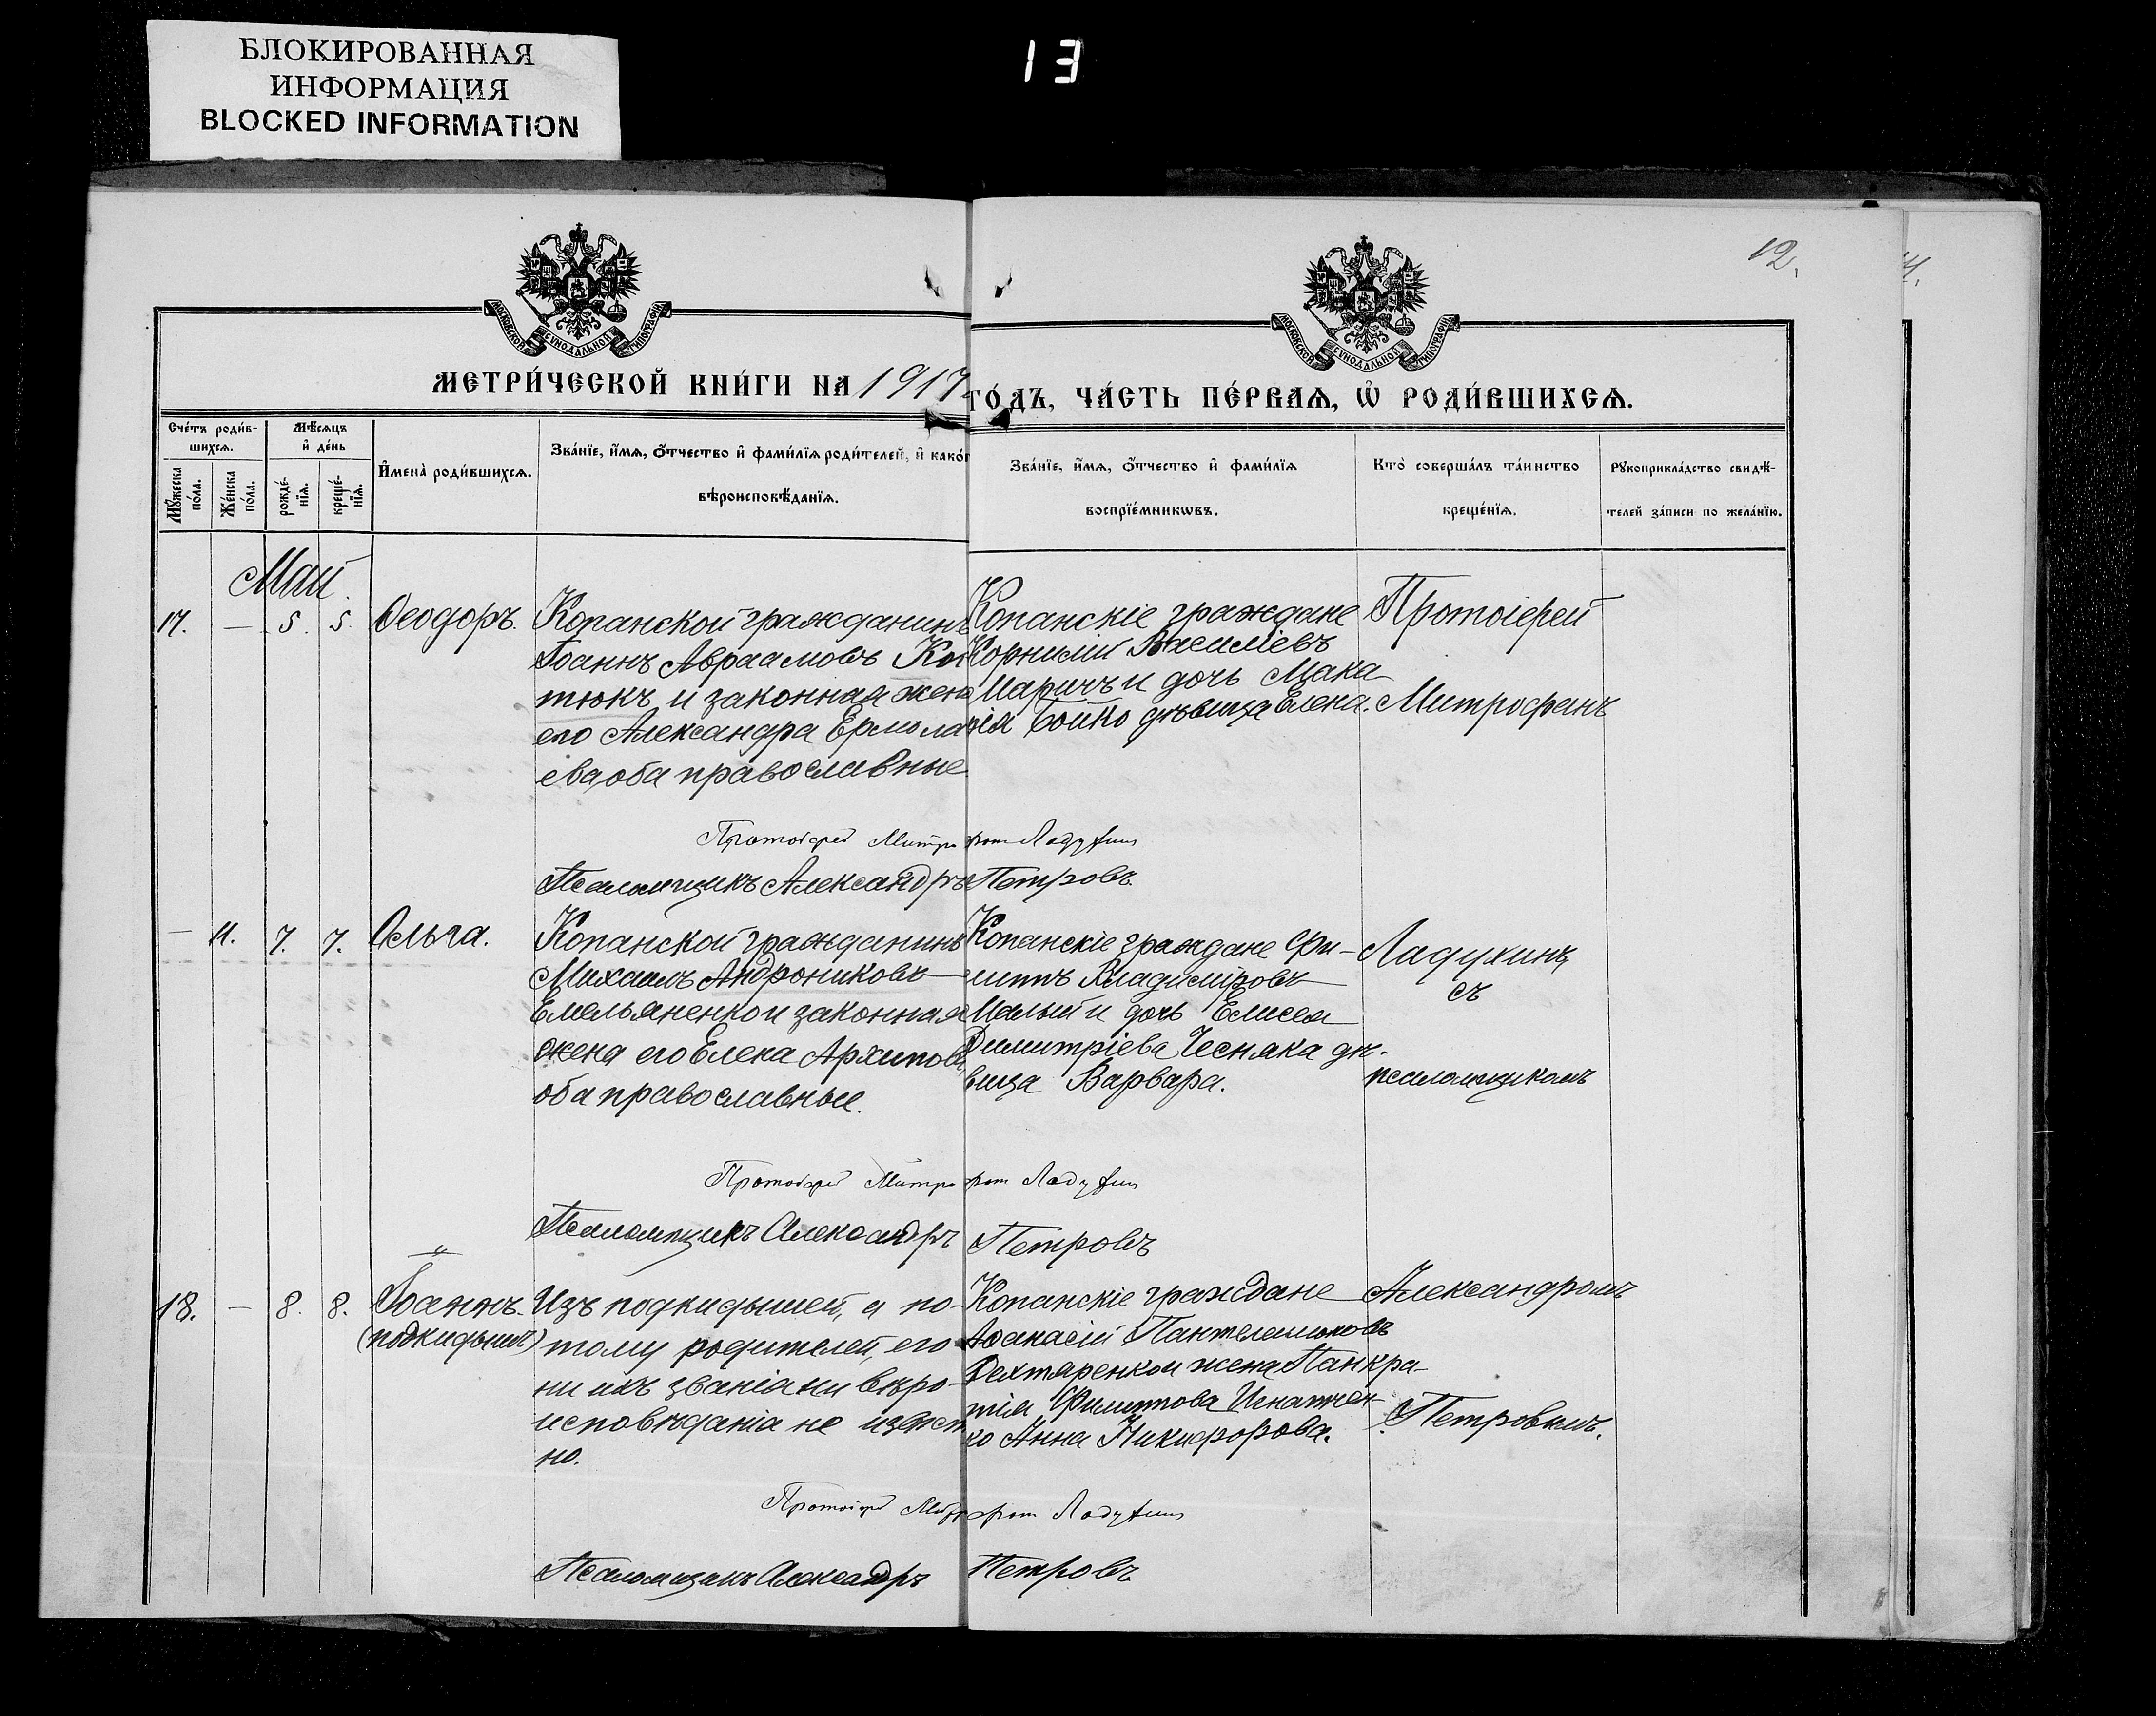 БЛОКИРОВАННАЯ
ИНФОРМАЦИЯ
BLOCKED INFORMATION
13
12.
МОСКОВСКОЙ СѴНОДАЛЬНОЙ ТИПОГРАФІИ
МОСКОВСКОЙ СѴНОДАЛЬНОЙ ТИПОГРАФІИ
МЕТРИ́ЧЕСКОЙ КНИ́ГИ НА 1917
ГО́ДЪ, ЧА́СТЬ ПЕ́РВАѦ, Ѡ҆ РОДИ́ВШИХСѦ.
Сче́тъ роди́в-
шихсѧ.
Мѣ́сѧцъ
и҆ де́нь
Мꙋ́жеска
по́ла.
Же́нска
по́ла.
рожде́-
нїѧ.
креще́-
нїѧ.
И҆мена̀ роди́вшихсѧ.
Зва́нїе, и҆́мѧ, ѻ҆́тчество и҆ фами́лїѧ роди́телей, и҆ како́г
вѣроисповѣ́данїѧ.
Зва́нїе, и҆́мѧ, ѻ҆́тчество и҆ фами́лїѧ
воспрїе́мникѡвъ.
Кто̀ соверша́лъ та́инство
креще́нїѧ.
Рꙋкоприкла́дство свидѣ́-
телей за́писи по жела́нїю.
Май.
17. — 5. 5. Ѳеодоръ.
Копанской гражданинъ
Іоаннъ Авраамовъ Ко
тюкъ и законная жена
его Александра Ермола
ева, оба православные
Копанскіе граждане
Корнилій Василіевъ
Маричъ и дочь Мака
рія Бойко дѣвица Елена.
Протоіерей
Митрофанъ
Протоіерей Митрофан Ладухин
Псаломщикъ Александръ Петровъ.
— 11. 7. 7. Ольга.
Копанской гражданинъ
Михаилъ Андрониковъ
Емельяненко и законная
жена его Елена Архипова,
оба православные.
Копанскіе граждане Фи-
липпъ Владиміровъ
Малый и дочь Елисея
Димитріева Чесняка дѣ-
вица Варвара.
Ладухинъ
съ
псаломщикомъ
Протоіерей Митрофан Ладухин
Псаломщикъ Александръ Петровъ
18. — 8. 8. Іоаннъ.
(подкидышъ)
Изъ подкидышей, а по-
тому родителей, его
ни ихъ званія ни вѣро-
исповѣданія не извѣст
но.
Копанскіе граждане
Аѳанасій Пантелеимоновъ
Дехтяренко и жена Панкра-
тія Филиппова Игнатчен-
ко Анна Никифорова.
Александромъ
Петровымъ.
Протоіерей Митрофан Ладухин
Псаломщикъ Александръ Петровъ